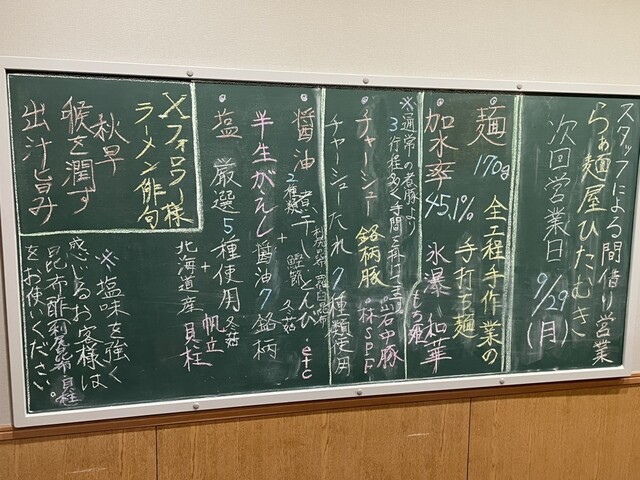 スタッフによる間借り営業
らぁ麺屋ひたむき
次回営業日 9/29(月)
麺 170g 全工程手作業の
手打ち麺
加水率 45.1% 氷瀑・和華
もち姫
※通常の煮豚より
3行程多く手間を
チャーシュー 銘柄豚 岩中豚
林SPF
チャーシューたれ 7種類使用
醤油 煮干し とんび・etc
2種類 鰹節 冬菇
利尻昆布 羅臼昆布
半生がえし 醤油7銘柄
塩 厳選5種使用 冬菇 帆立
+
北海道産 貝柱
Xフォロワー様
ラーメン俳句
秋早
喉を潤す
出汁旨み
※塩味を強く
感じるお客様は
昆布酢
をお使いください。